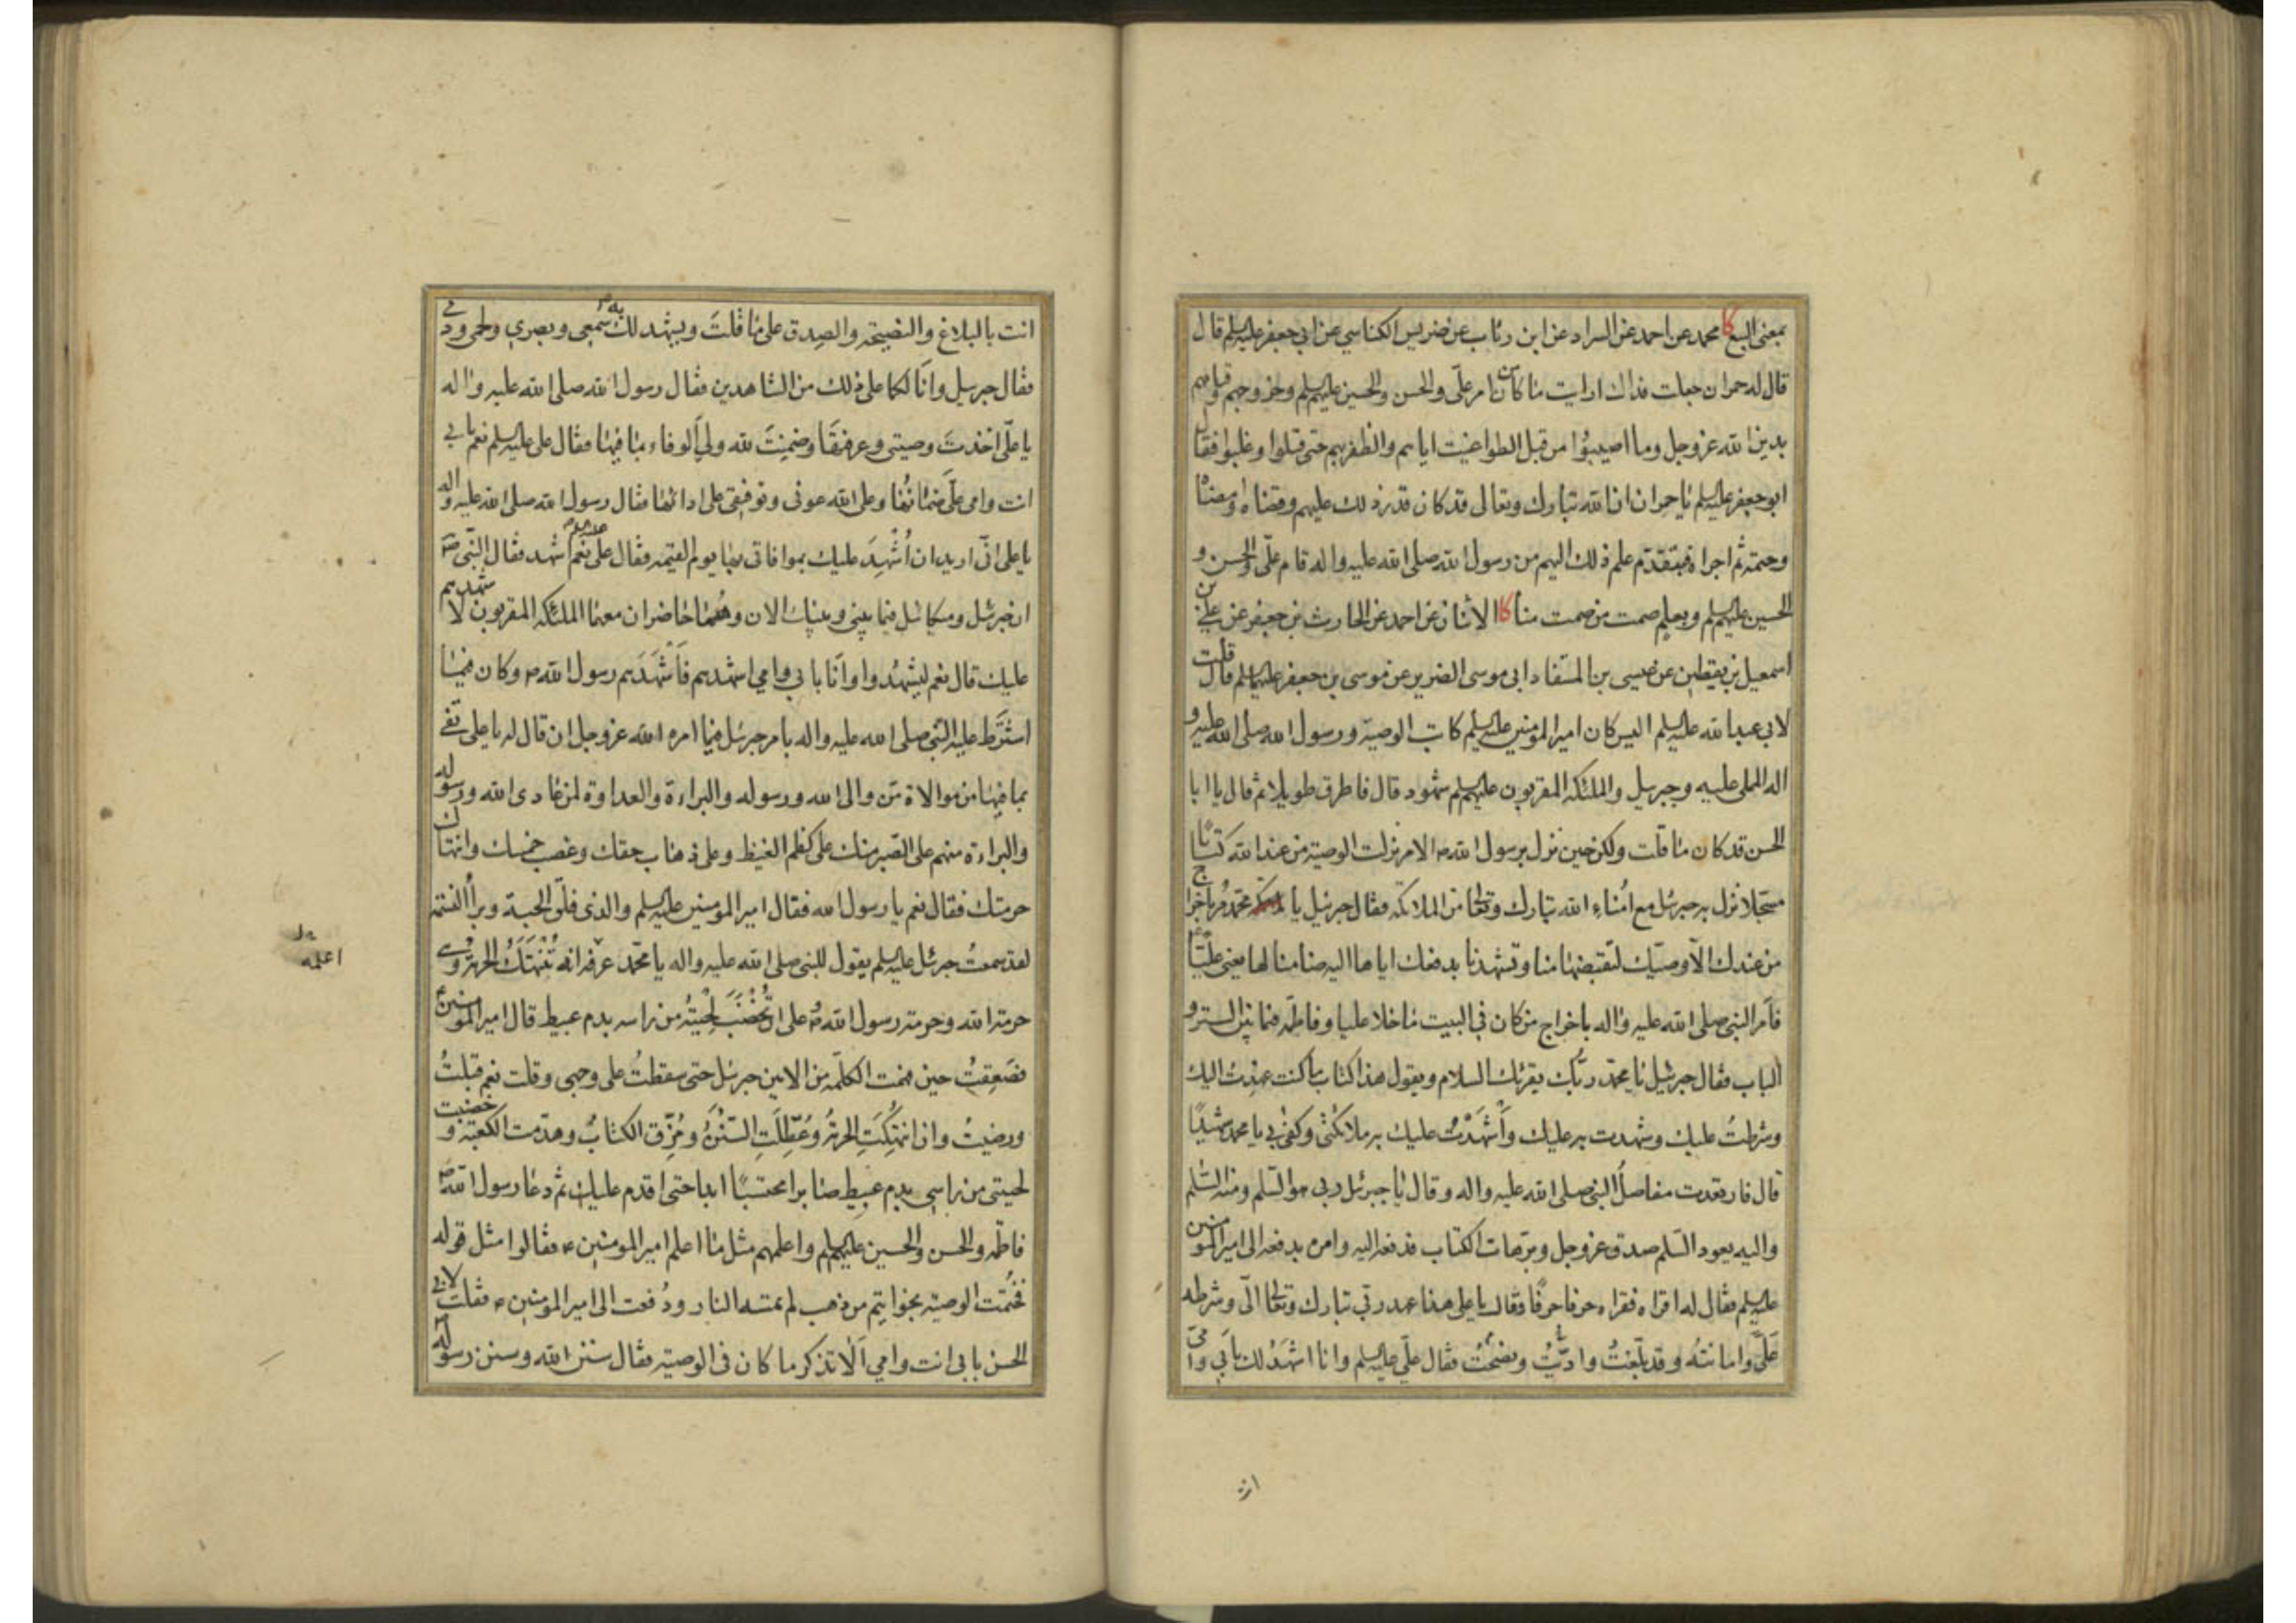 بمعنى البيع كا محمد عن احمد عن السراد عن ابن رئاب عن ضريس الكناسي عن ابي جعفر عليه السلم قال
قال له حمران جعلت فداك ارايت ما كان من امر علي والحسن والحسين عليهم السلم وخروجهم وقيامهم
بدين الله عز وجل وما اصيبوا من قبل الطواغيت اياهم والظفر بهم حتى قتلوا وغلبوا فقال
ابو جعفر عليه السلم يا حمران ان الله تبارك وتعالى قد كان قدر ذلك عليهم وقضاه وامضاه
وحتمه ثم اجراه فبتقدم علم ذلك اليهم من رسول الله صلى الله عليه واله قام علي والحسن و
الحسين عليهم السلم وبعلم صمت من صمت منا كا الاثنان عن احمد عن الحارث بن جعفر عن علي بن
اسمعيل بن يقطين عن عيسى بن المستفاد ابي موسى الضرير عن موسى بن جعفر عليهما السلم قال قلت
لابي عبد الله عليه السلم اليس كان امير المومنين عليه السلم كاتب الوصية ورسول الله صلى الله عليه و
اله المملي عليه وجبرئيل والملئكة المقربون عليهم السلم شهود قال فاطرق طويلا ثم قال يا ابا
الحسن قد كان ما قلت ولكن حين نزل برسول الله ص الامر نزلت الوصية من عند الله كتابًا
مسجلا نزل به جبرئيل مع امناء الله تبارك وتعالى من الملائكة فقال جبرئيل يا محمد مر باخراج
من عندك الا وصيك لتقبضها منا وتشهدنا بدفعك اياها اليه ضامنا لها يعني عليًّا ع
فامر النبي صلى الله عليه واله باخراج من كان في البيت ما خلا عليا وفاطمة فيما بين الستر و
الباب فقال جبرئيل يا محمد ربك يقرئك السلام ويقول هذا كتاب ما كنت عهدت اليك
وشرطتُ عليك وشهدت به عليك وأَشْهَدْتُ عليك به ملائكتي وكفى بي يا محمد شهيدًا
قال فارتعدت مفاصل النبي صلى الله عليه واله وقال يا جبرئيل ربي هو السّلم ومنه السّلم
واليه يعود السّلم صدق عز وجل وبر هات الكتاب فدفعه اليه وامره بدفعه الى امير المومنين
عليه السلم فقال له اقراه فقراه حرفا حرفًا فقال يا علي هذا عهد ربي تبارك وتعالى الىّ وشرطه
عَلَيَّ وامانته وقد بلّغتُ وادّيتُ ونصحتُ فقال علي عليه السلم وانا اشهدُ لك بابي وامي
انت
انت بالبلاغ والنصيحة والصدق على ما قلتَ ويشهد لك به سمعي وبصري ولحمي ودمي
فقال جبرئيل وانا لكما على ذلك من الشاهدين فقال رسول الله صلى الله عليه واله
يا علي اخذتَ وصيتي وعرفتَها وضمنتَ لله ولي الوفاء بما فيها فقال علي عليه السلم نعم بابي
انت وامي عليّ ضمانُها وعلى الله عوني وتوفيقي على ادائها فقال رسول الله صلى الله عليه واله
يا علي اني اريد ان أُشْهِدَ عليك بموافاتي بها يوم القيمة فقال علي عليه السلم نعم اشهد فقال النبي ص
ان جبرئيل وميكائيل فيما بيني وبينك الان وهُما حاضران معهما الملئكة المقربون لاشهدهم
عليك قال نعم ليشهدوا وانا بابي وامي اشهدهم فَأَشْهَدَهم رسول الله ص وكان فيما
اشترط عليه النبي صلى الله عليه واله بامر جبرئيل فيما امره الله عز وجل ان قال له يا علي تفي
بما فيها من موالاة من والى الله ورسوله والبراءة والعداوة لمن عادى الله ورسوله
والبراءة منهم على الصبر منك على كظم الغيظ وعلى ذهاب حقك وغصب خمسك وانتهاك
حرمتك فقال نعم يا رسول الله فقال امير المومنين عليه السلم والذي فلق الحبة وبرأ النسمة
لقد سمعتُ جبرئيل عليه السلم يقول للنبي صلى الله عليه واله يا محمد عرّفه انه تُنْتَهَكُ الحرمة وهي
حرمة الله وحرمة رسول الله ص وعلى ان تُخْضَبَ لِحْيَتُه من راسه بدم عبيط قال امير المومنين ع
فصَعِقتُ حين فهمت الكلمة من الامين جبرئيل حتى سقطتُ على وجهي وقلت نعم قبلتُ
ورضيتُ وان انتُهِكَتِ الحرمةُ وعُطِّلَتِ السُّنَنُ ومُزِّق الكتابُ وهدّمت الكعبة وخضبت
لحيتي من راسي بدم عبيط صابرا محتسبًا ابدا حتى اقدم عليك ثم دعا رسول الله ص
فاطمة والحسن والحسين عليهم السلم واعلمهم مثل ما اعلم امير المومنين ع فقالوا مثل قوله
فختُمت الوصية بخواتيم من ذهب لم تمسه النار ودُفعت الى امير المومنين ع فقلت لابي
الحسن بابي انت وامي اَلا تذكر ما كان في الوصية فقال سنن الله وسنن رسوله
اعلمه